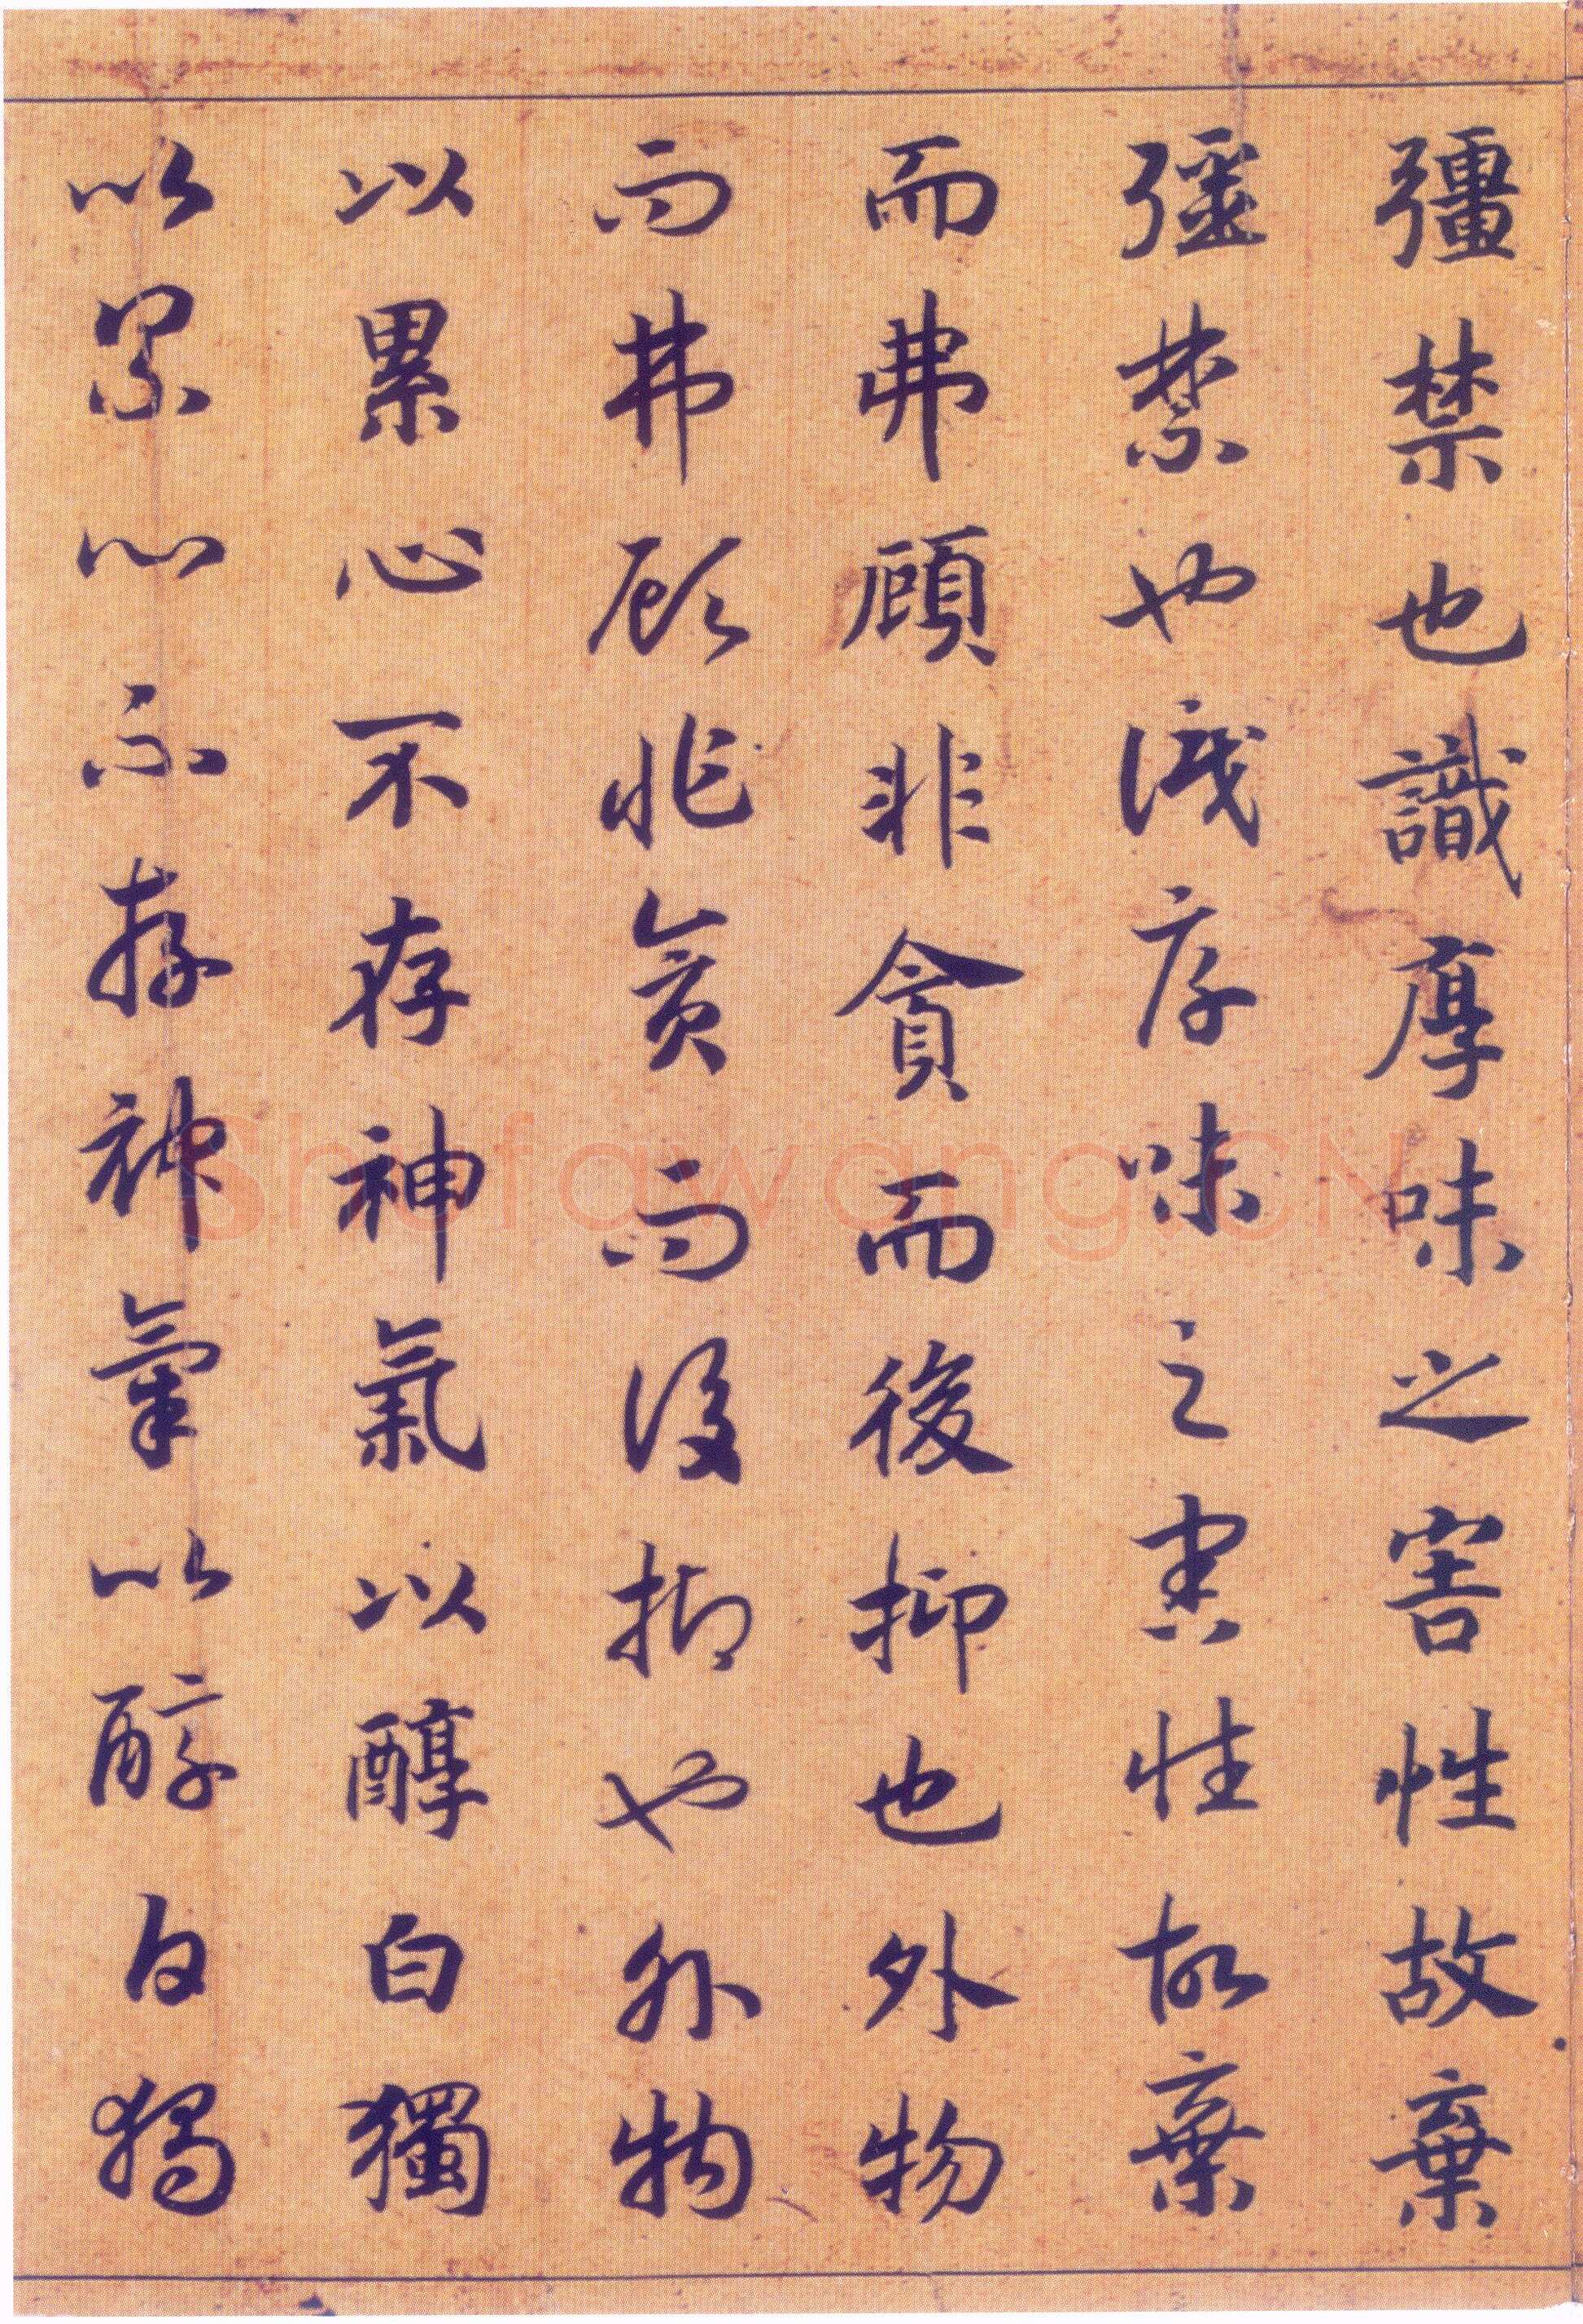 彊禁也識厚味之害性故棄
彊禁也識厚味之害性故棄
而弗顧非貪而後抑也外物
而弗顧非貪而後抑也外物
以累心不存神氣以醇白獨
以累心不存神氣以醇白獨
Shufawang.CN